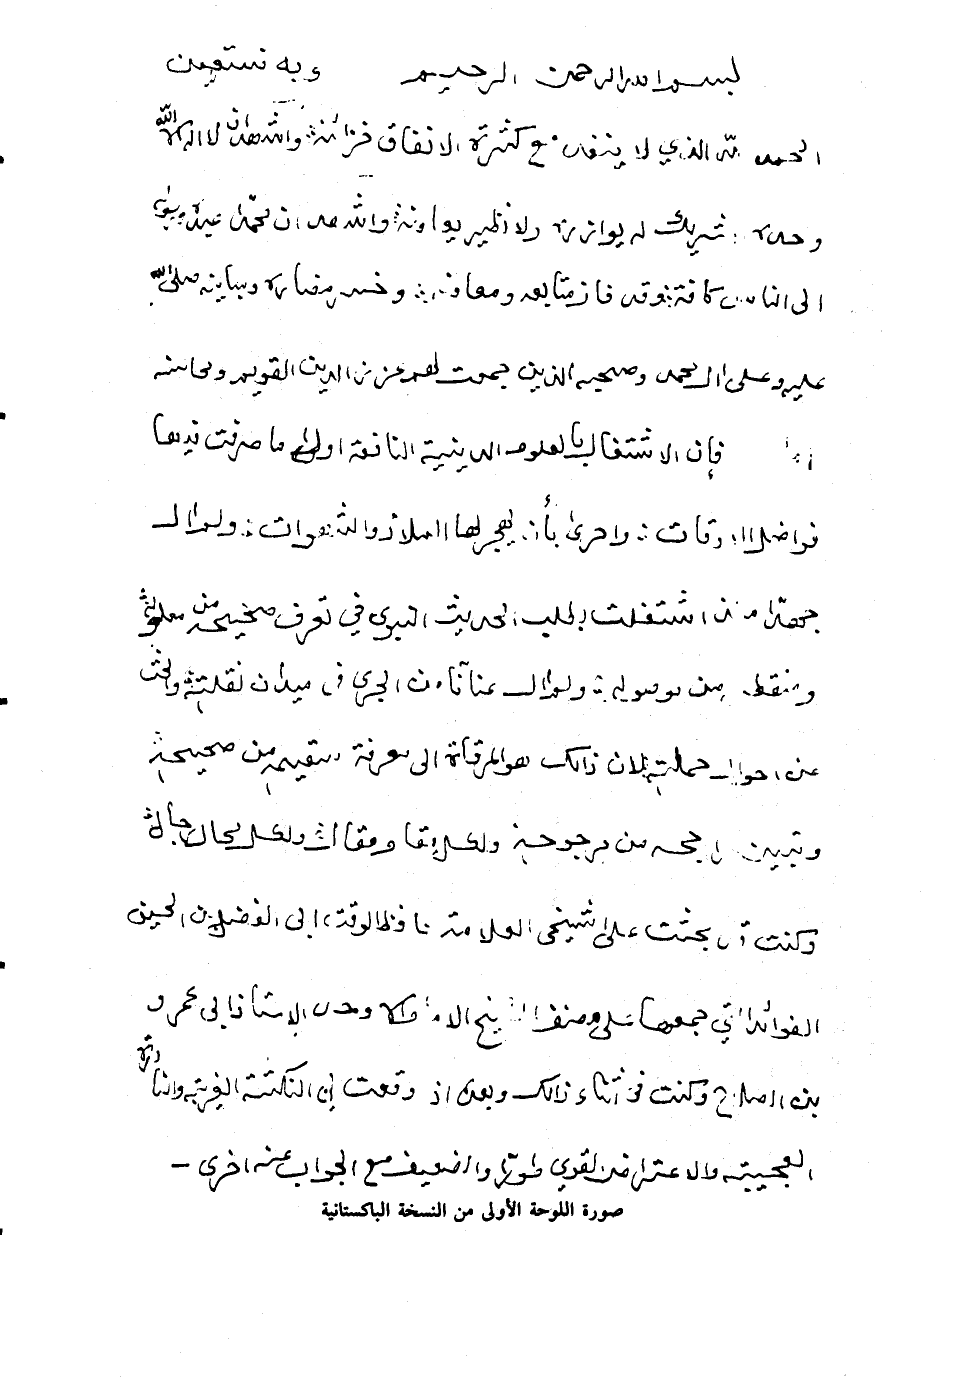 بسم الله الرحمن الرحيم وبه نستعين
الحمد لله الذي لا ينفد مع كثرة الانفاق خزائنه واشهد ان لا اله الا الله
وحده شريك له يوازره ولا نظير يعاونه واشهد ان محمدا عبده
الى الناس كافة ومعاونه وخسر مضاره ومباينه صلى الله
عليه وعلى ال محمد وصحبه الذين جمعت لهم الدين القويم ومحاسنه
فإن الاشتغال بالعلوم الدينية النافعة اولى ما صرفت فيها
فواضل الاوقات واحرى بأن يهجر لها الملاذ والشهوات ولم ال
جهدا منذ اشتغلت بطلب الحديث النبوي في تعرف صحيحه من معلوله
ومنقطعه من موصوله ولم ال عنانا من الجري في ميدان نقلته والبحث
عن احوال حملته لان ذالك هو المرقاة الى معرفة سقيمه من صحيحه
وتبيين راجحه من مرجوحه ولكل مقام مقال ولكل مجال رجال
وكنت قد بحثت على شيخي العلامة حافظ الوقت ابى الفضل بن الحسين
الفوائد التي جمعها على مصنف الشيخ الامام الاوحد الاستاذ ابى عمرو
بن الصلاح وكنت في أثناء ذالك وبعده اذ وقعت لي النكتة الغريبة والنادرة
العجيبة والاعتراض القوي طورا والضعيف مع الجواب عنه اخرى -
صورة اللوحة الأولى من النسخة الباكستانية